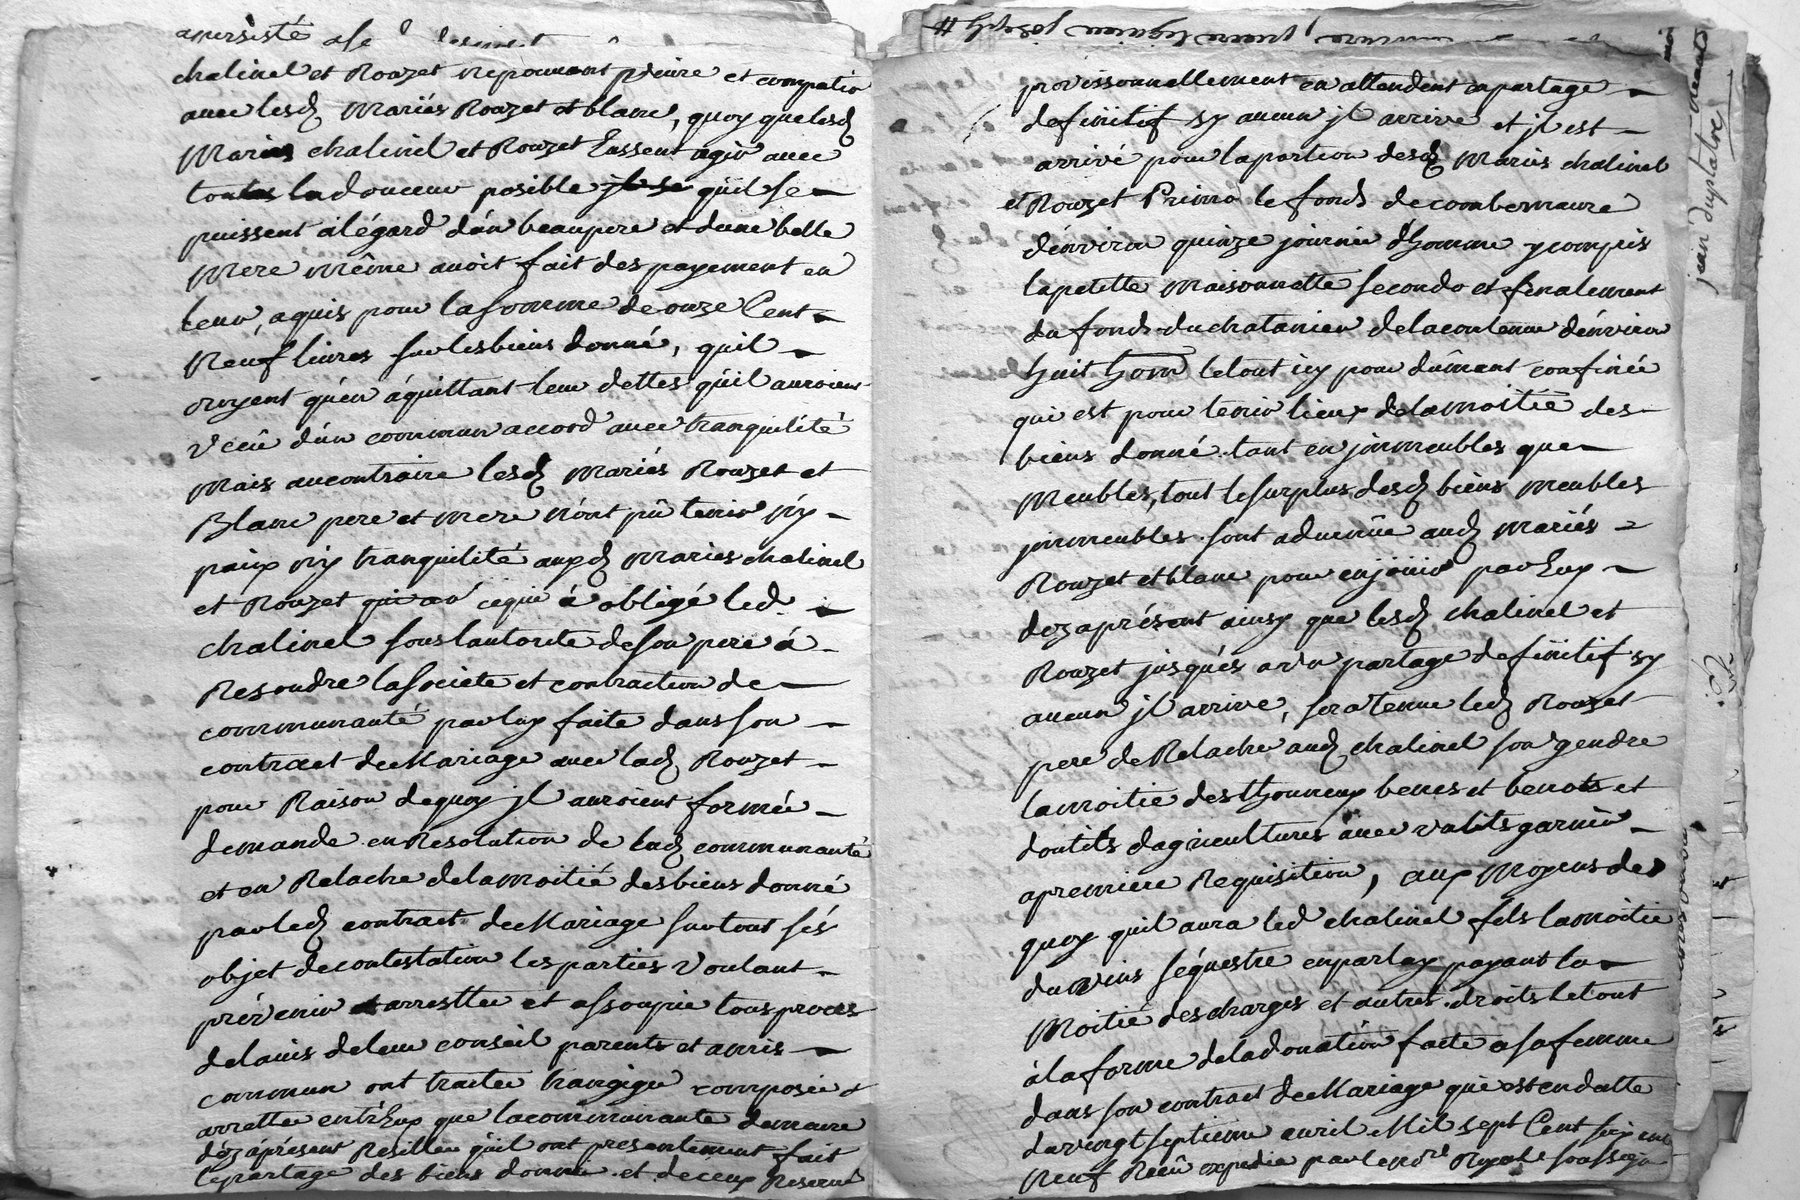 apersisté
chalinel et Rouzet nepouvant vivre et compatir
avec lesd Mariés Rouzet et blanc, quoy que lesd
Mariés chalinel et Rouzet Eussent agir avec
toutes la douceur posible quil se
puissent alégard d'un beaupere et d'une belle
Mere même avoit fait des payement en
leur, aquis pour la somme de onze Cent
Neuf livres sur les biens donné, quil
croyent qu'en áquittant leur dettes qu'il auroient
vecû d'un commun accord avec tranquilité
Mais aucontraire lesd Mariés Rouzet et
Blanc pere et mere n'ont pû tenir ny
paix ny tranquilité auxd Mariés chalinel
et Rouzet ce qui á obligé led
chalinel sous lautorite de son pere á
Resoudre la Societe et contraction de
communauté par luy faite dans son
contract de Mariage avec lad Rouzet
pour Raison dequoy jl auroient formée
demande en Resolution de lad communauté
et en Relache de la moitié des biens donné
par led contract de Mariage sur tout sés
objet de contestation les parties voulant
prévenir arrestter et assoupir tous procés
delavis de leur conseil parents et amis
commun ont traitée transigée composée et
arrettée entr'Eux que la communauté demeure
déz áprésent Resiliée qu'il ont presentement fait
le partage des biens donné et de ceux Reservé
provissonnellement en attendent un partage
definitif sy aucun jl arrive et jl est
arrivé pour la portion desd Mariés chalinel
et Rouzet Primo le fonds de combemaure
d'énviron quinze journée d'homme y compris
la petitte Maisonnette secondo et finalement
du fonds du chatanier de la contenue d'énviron
huit hom le tout icy pour dûment confinée
qui est pour tenir lieux de la moitié des
biens donné tant en jmmeubles que
Meubles, tout le surplus desd biens meubles
jmmeubles sont advenüe aud Mariés
Rouzet et blanc pour en joüir par Eux
dez aprésent ainsy que lesd chalinel et
Rouzet jusqués a un partage definitif sy
aucun jl arrive, sera tenue led Rouzet
pere de Relacher aud chalinel son gendre
la moitie des thonneaux benes et benots et
doutils dagricultures avec un lits garnie
a premiere Requisition, aux Moyens de
quoy quil aura led chalinel fils la moitie
du vins séquestre en par luy payant la
Moitié des charges et autres droits le tout
á la forme de la donation faite a sa femme
dans son contract de Mariage qui est en datte
du vingt septieme avril Mil sept Cent
Neuf Reçû expedie par le no.re Royal soussigné